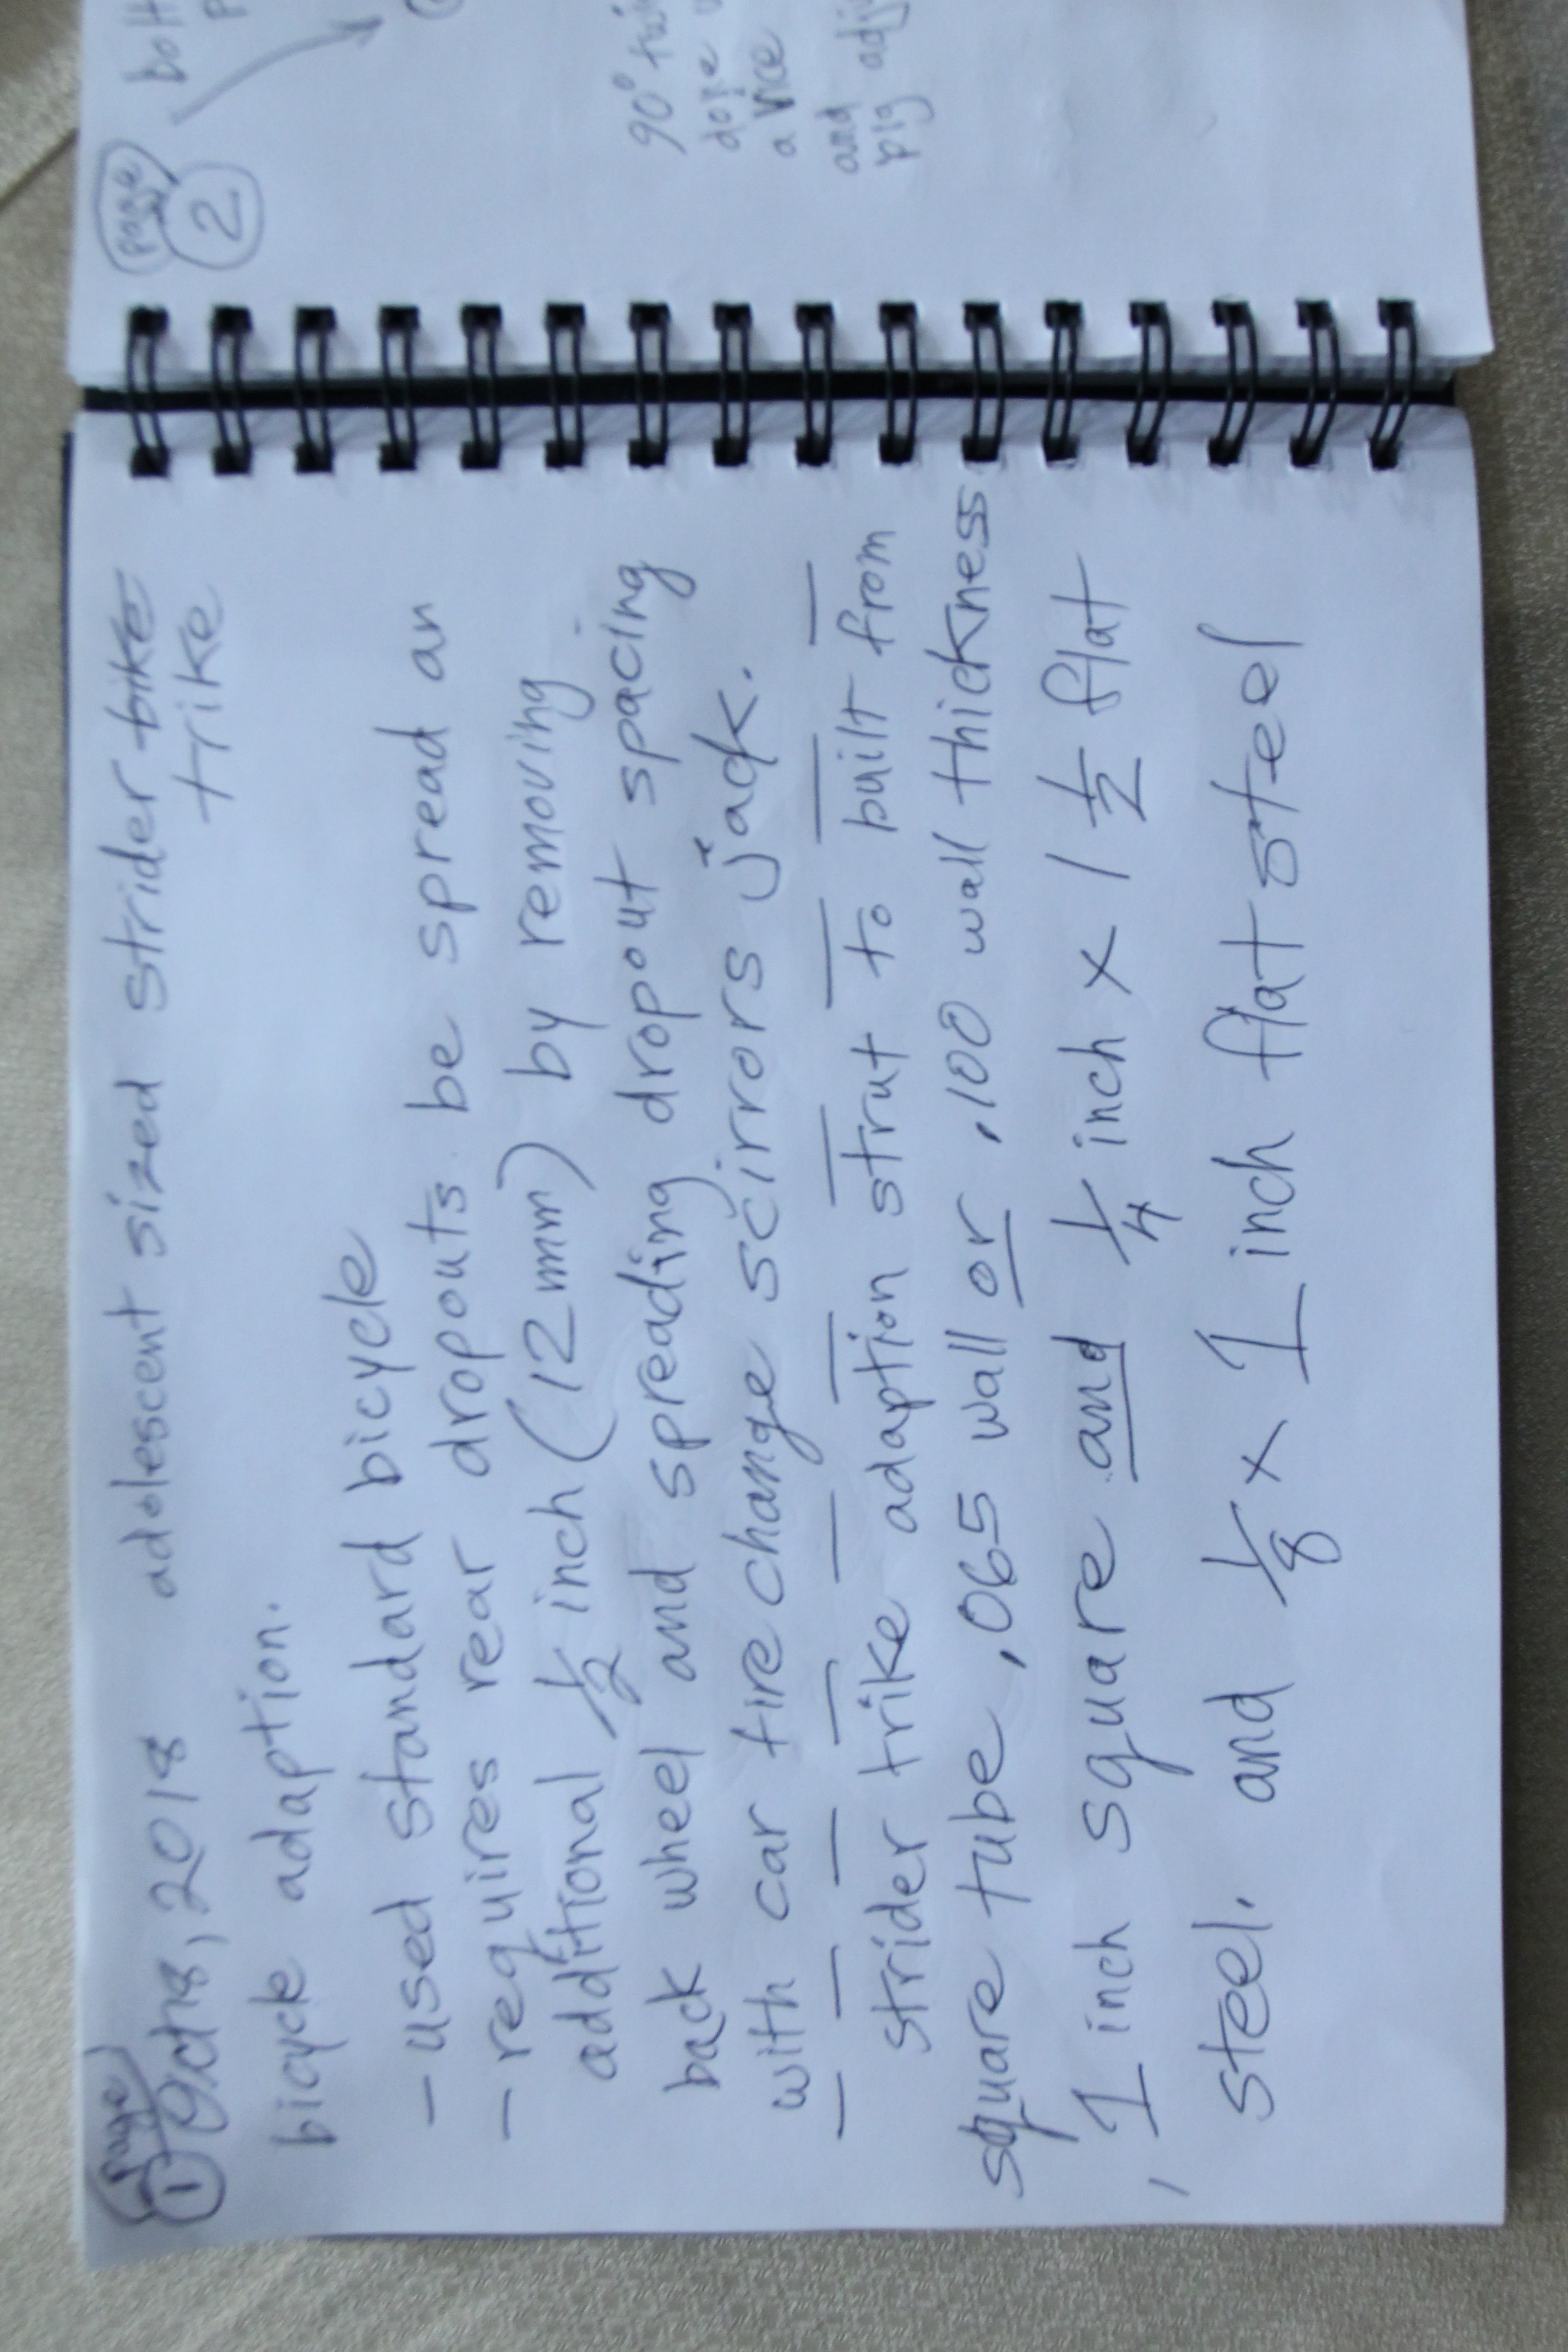 page
1
Oct 18, 2018 adolescent sized strider bike
trike
bicycle adaption.
- used standard bicycle
- requires rear dropouts be spread an
additional 1/2 inch (12mm) by removing
back wheel and spreading dropout spacing
with car tire change scirrors jack.
strider trike adaption strut to built from
square tube, .065 wall or .100 wall thickness
, 1 inch square and 1/4 inch x 1 1/2 flat
steel. and 1/8 x 1 inch flat steel
page
2
bolt
90° twi
done
a vice
and
pig adj